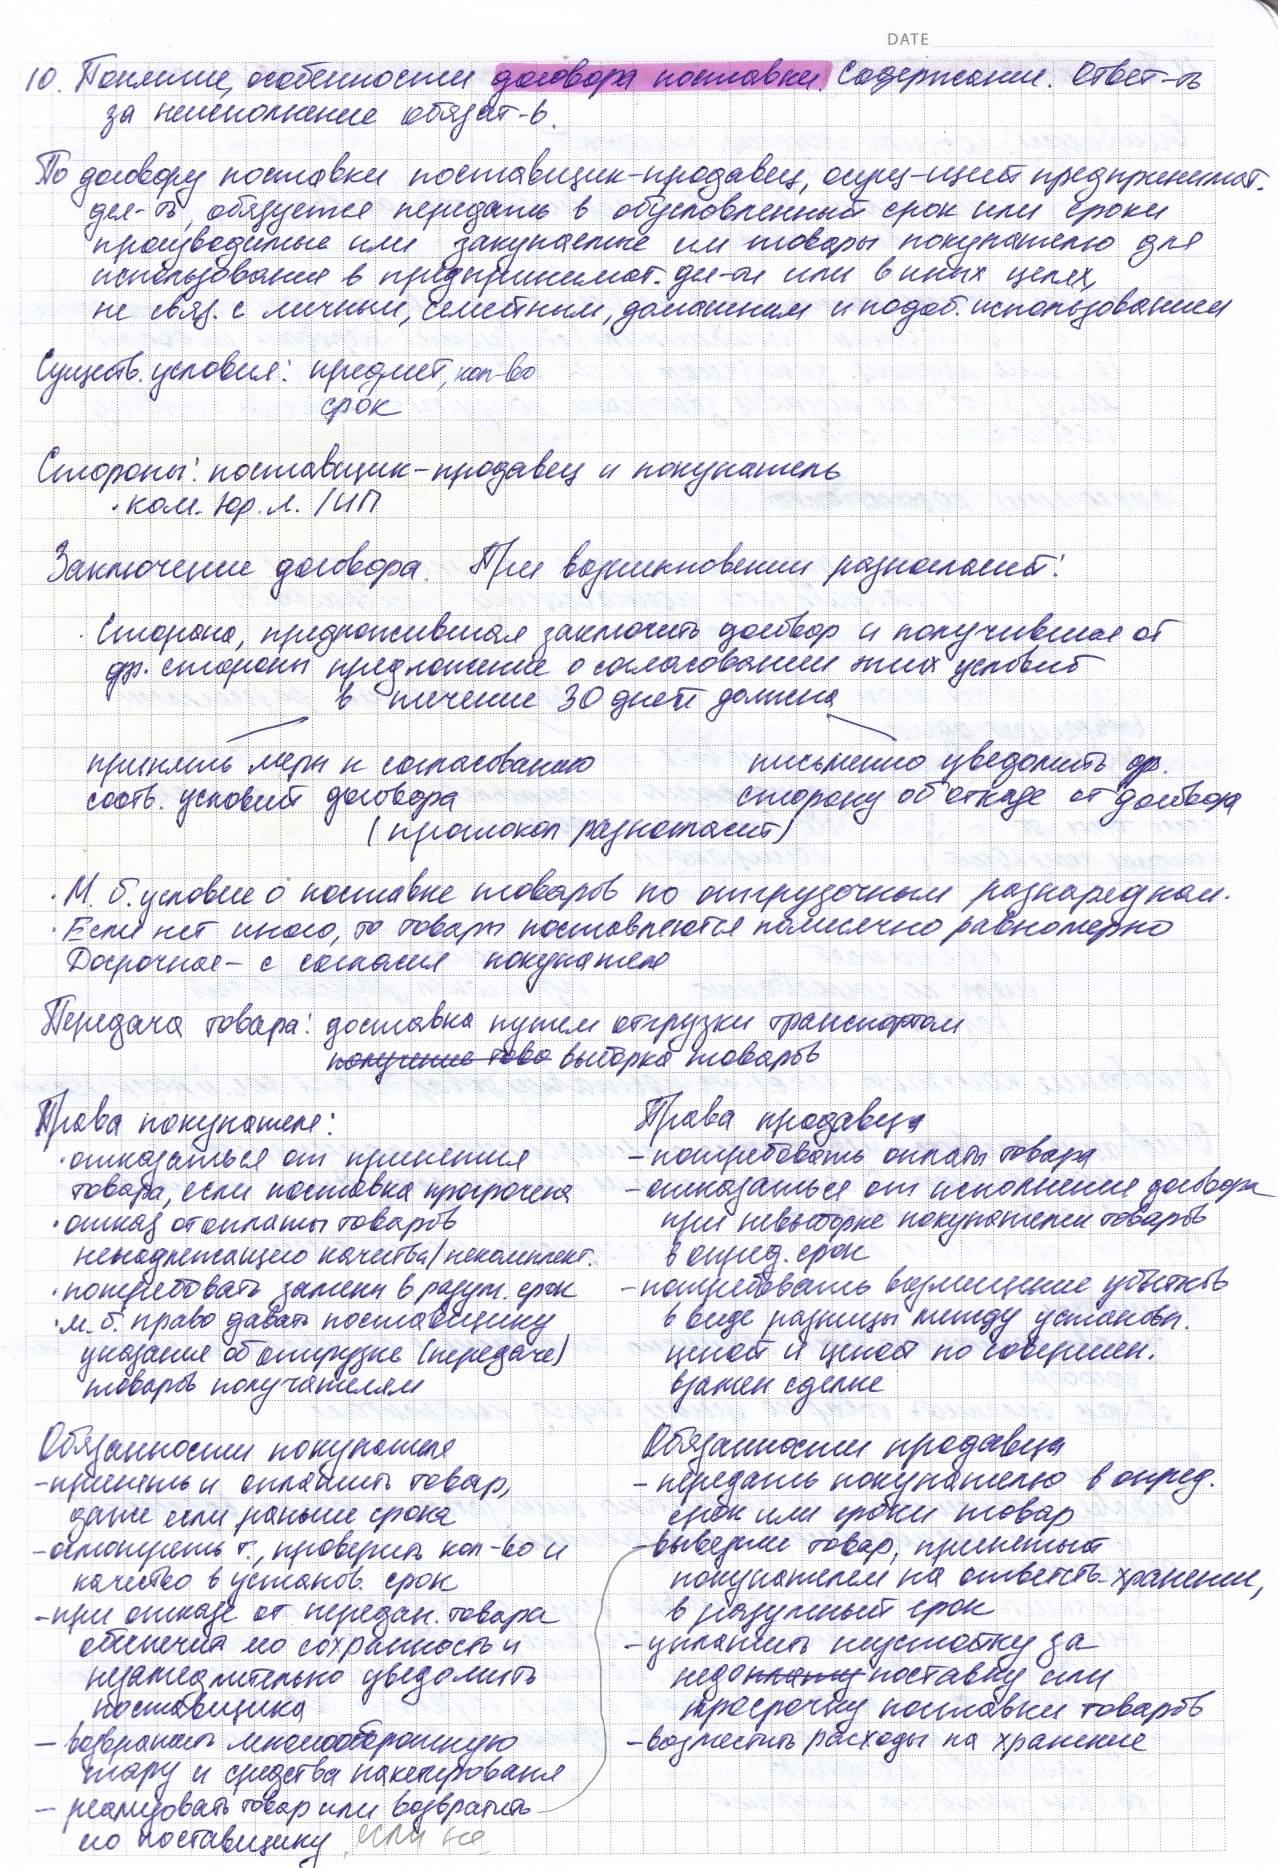 DATE
10. Понятие, особенности договора поставки. Содержание. Ответ-ть
за неисполнение обязат-в.
По договору поставки поставщик-продавец, осущ-щий предпринимат.
дея-ть, обязуется передать в обусловленный срок или сроки
производимые или закупаемые им товары покупателю для
использования в предпринимат. дея-ти или в иных целях,
не связ. с личным, семейным, домашним и подоб. использованием
Существ. условия: предмет, кол-во
срок
Стороны: поставщик-продавец и покупатель
· ком. юр. л. / ИП
Заключение договора. При возникновении разногласий:
· Сторона, предложившая заключить договор и получившая от
др. стороны предложение о согласовании этих условий
в течение 30 дней должна
принять меры к согласованию письменно уведомить др.
соотв. условий договора сторону об отказе от договора
(протокол разногласий)
· М. б. условие о поставке товаров по отгрузочным разнарядкам.
· Если нет иного, то товары поставляются помесячно равномерно
Досрочная – с согласия покупателя
Передача товара: доставка путем отгрузки транспортом
получение това выборка товаров
Права покупателя:
· отказаться от принятия
товара, если поставка просрочена
· отказ от оплаты товаров
ненадлежащего качества/некомплект.
· потребовать замены в разум. срок
· м. б. право давать поставщику
указания об отгрузке (передаче)
товаров получателям
Права продавца
– потребовать оплаты товара
– отказаться от исполнения договора
при невыборке покупателем товаров
в опред. срок
– потребовать возмещение убытков
в виде разницы между установл.
ценой и ценой по совершен.
взамен сделке
Обязанности покупателя
– принять и оплатить товар,
даже если раньше срока
– осмотреть т., проверить кол-во и
качество в установ. срок
– при отказе от передан. товара
обеспечить его сохранность и
незамедлительно уведомить
поставщика
– возвратить многооборотную
тару и средства пакетирования
– реализовать товар или возвратить
его поставщику, если не
Обязанности продавца
– передать покупателю в опред.
срок или сроки товар
– вывезти товар, принятый
покупателем на ответств. хранение,
в разумный срок
– уплатить неустойку за
недоплату поставку или
просрочку поставки товаров
– возместить расходы на хранение